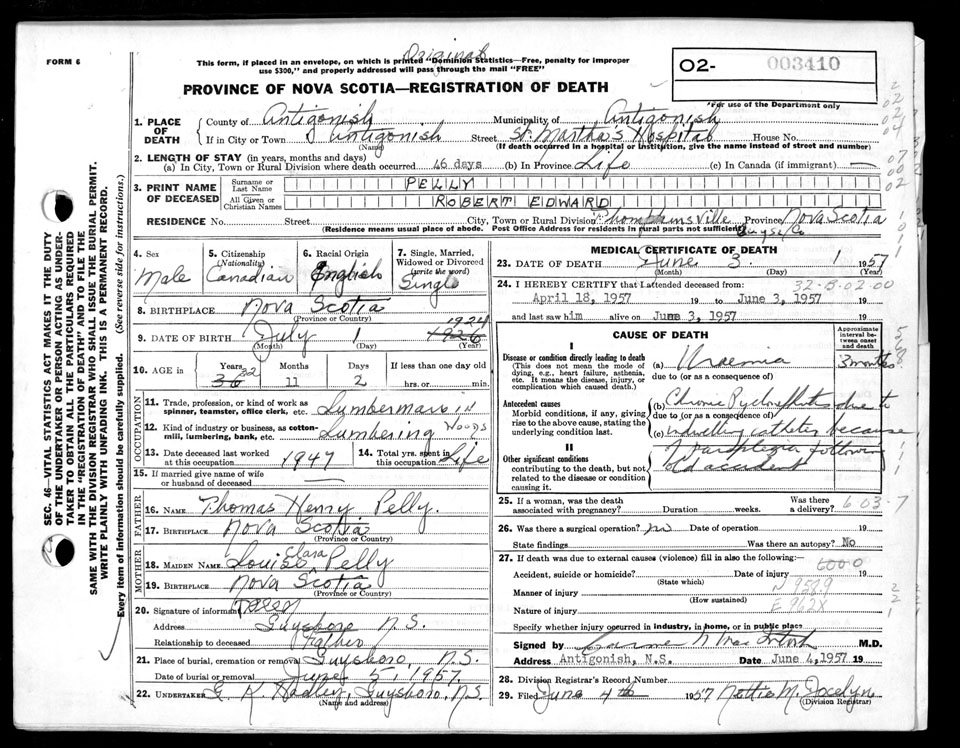 Original
FORM 6
This form, if placed in an envelope, on which is printed "Dominion Statistics—Free, penalty for improper
use $300," and properly addressed will pass through the mail "FREE"
O2- 003410
*For use of the Department only
PROVINCE OF NOVA SCOTIA—REGISTRATION OF DEATH
1. PLACE OF DEATH County of Antigonish Municipality of Antigonish
If in City or Town Antigonish Street St. Martha's Hospital House No.
(Name) (If death occurred in a hospital or institution, give the name instead of street and number)
2. LENGTH OF STAY (in years, months and days)
(a) In City, Town or Rural Division where death occurred 46 days (b) In Province Life (c) In Canada (if immigrant) —
3. PRINT NAME OF DECEASED Surname or Last Name PELLY
All Given or Christian Names ROBERT EDWARD
RESIDENCE No. Street City, Town or Rural Division Province Nova Scotia
(Residence means usual place of abode. Post Office Address for residents in rural parts not sufficient) Guys. Co
4. Sex Male
5. Citizenship (Nationality) Canadian
6. Racial Origin English
7. Single, Married, Widowed or Divorced (write the word) Single
8. BIRTHPLACE Nova Scotia
(Province or Country)
9. DATE OF BIRTH July 1 1926 1924
(Month) (Day) (Year)
10. AGE in Years 32 Months 11 Days 2 If less than one day old hrs. or min.
OCCUPATION
11. Trade, profession, or kind of work as spinner, teamster, office clerk, etc. Lumberman in
12. Kind of industry or business, as cotton-mill, lumbering, bank, etc. Lumbering Woods
13. Date deceased last worked at this occupation 1947
14. Total yrs. spent in this occupation Life
15. If married give name of wife or husband of deceased —
FATHER
16. NAME Thomas Henry Pelly.
17. BIRTHPLACE Nova Scotia
(Province or Country)
MOTHER
18. MAIDEN NAME Louise Clara Pelly
19. BIRTHPLACE Nova Scotia
(Province or Country)
20. Signature of informant
Address Guysboro N.S.
Relationship to deceased Father
21. Place of burial, cremation or removal Guysboro, N.S.
Date of burial or removal June 5, 1957
22. UNDERTAKER G. K. Hadley, Guysboro, N.S.
(Name and address)
MEDICAL CERTIFICATE OF DEATH
23. DATE OF DEATH June 3 1957
(Month) (Day) (Year)
24. I HEREBY CERTIFY that I attended deceased from: 32-B-02-00
April 18, 1957 19 to June 3, 1957 19
and last saw him alive on June 3, 1957 19
CAUSE OF DEATH
Approximate interval between onset and death
I
Disease or condition directly leading to death
(This does not mean the mode of dying, e.g., heart failure, asthenia, etc. It means the disease, injury, or complication which caused death.)
(a) Uraemia 3 months
due to (or as a consequence of)
Antecedent causes
Morbid conditions, if any, giving rise to the above cause, stating the underlying condition last.
(b) Chronic Pyelonephritis due to
due to (or as a consequence of)
(c) indwelling catheter because
II
Other significant conditions
contributing to the death, but not related to the disease or condition causing it.
of Paraplegia following
old accident
25. If a woman, was the death associated with pregnancy? Duration weeks. Was there a delivery?
6-03-7
26. Was there a surgical operation? no Date of operation 19
State findings Was there an autopsy? No
27. If death was due to external causes (violence) fill in also the following:—
Accident, suicide or homicide? Date of injury 19
(State which)
Manner of injury
(How sustained)
Nature of injury
N 958.9
E 962X
Specify whether injury occurred in industry, in home, or in public place
Signed by M.D.
Address Antigonish, N.S. Date June 4, 1957 19
28. Division Registrar's Record Number
29. Filed June 4th 1957 Nettie M. Jocelyn
(Division Registrar)
SEC. 46—VITAL STATISTICS ACT MAKES IT THE DUTY
OF THE UNDERTAKER OR PERSON ACTING AS UNDER-
TAKER TO OBTAIN ALL THE PARTICULARS REQUIRED
IN THE "REGISTRATION OF DEATH" AND TO FILE THE
SAME WITH THE DIVISION REGISTRAR WHO SHALL ISSUE THE BURIAL PERMIT.
WRITE PLAINLY WITH UNFADING INK. THIS IS A PERMANENT RECORD.
Every item of information should be carefully supplied. (See reverse side for instructions.)